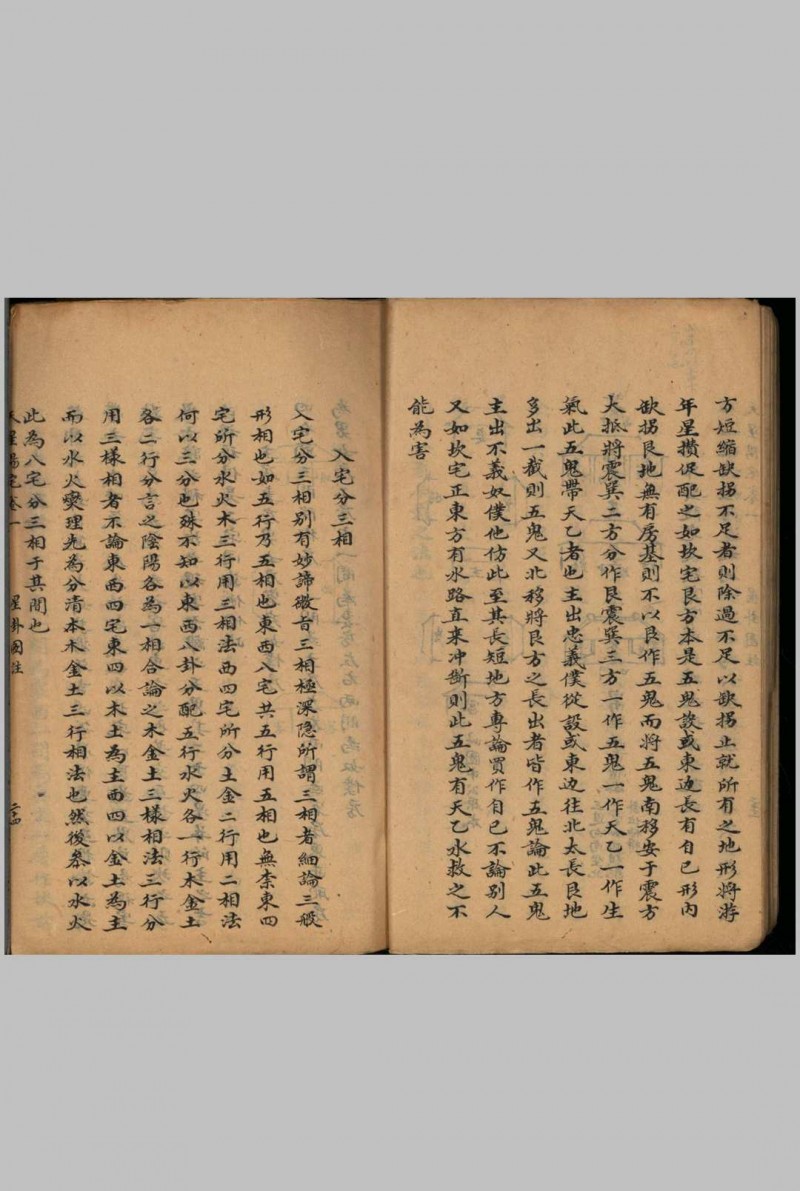 方短縮缺拐不足者則除過不足以缺拐止就所有之地形將游
年星攢促配之如坎宅艮方本是五鬼設或東边長有自已形內
缺拐艮地無有房基則不以艮作五鬼而將五鬼南移安于震方
大抵將震巽二方分作艮震巽三方一作五鬼一作天乙一作生
氣此五鬼帶天乙者也主出忠義僕從設或東边往北太長艮地
多出一截則五鬼又北移將艮方之長出者皆作五鬼論此五鬼
主出不義奴僕他仿此至其長短地方專論買作自己不論別人
又如坎宅正東方有水路直来冲斷則此五鬼有天乙水救之不
能為害
入宅分三相
入宅分三相別有妙諦微旨三相極深隐所謂三相者細論三般
形相也如五行乃五相也東西八宅共五行用五相也無柰東四
宅所分水火木三行用三相法西四宅所分土金二行用二相法
何以三分也殊不知以東西八卦分配五行水火各一行木金土
各二行分言之陰陽各為一相合論之木金土三樣相法三行分
用三樣相者不論東西四宅東四以木土為主西四以金土為主
而以水火爕理先為分清本木金土三行相法也然後叅以水火
此為八宅分三相于其間也
星卦圖注